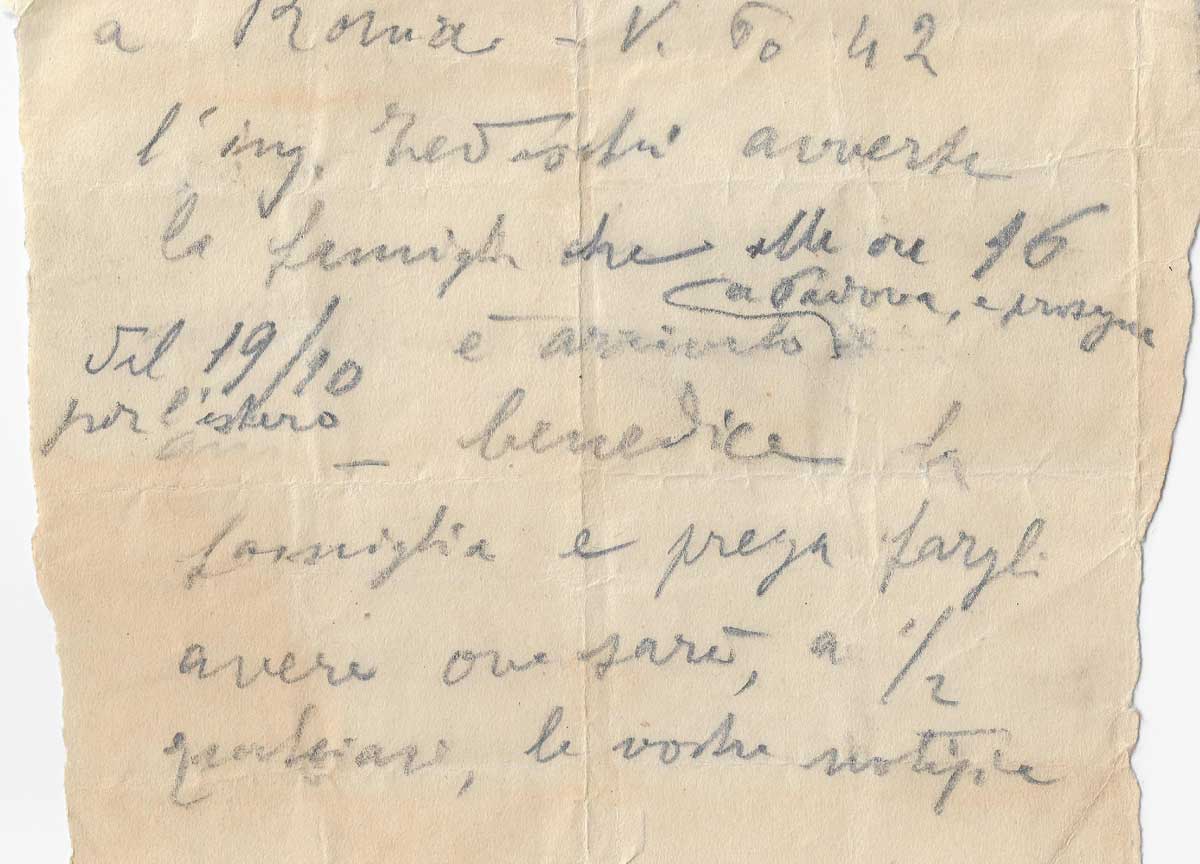 a Roma - V. Po 42
l'ing. Tedeschi avverte
la famiglia che alle ore 16
a Padova, e prosegue
del 19/10 è arrivato
per l'estero
- benedice la
famiglia e prega fargli
avere ove sarà, a 1/2
qualsiasi, le vostre notizie